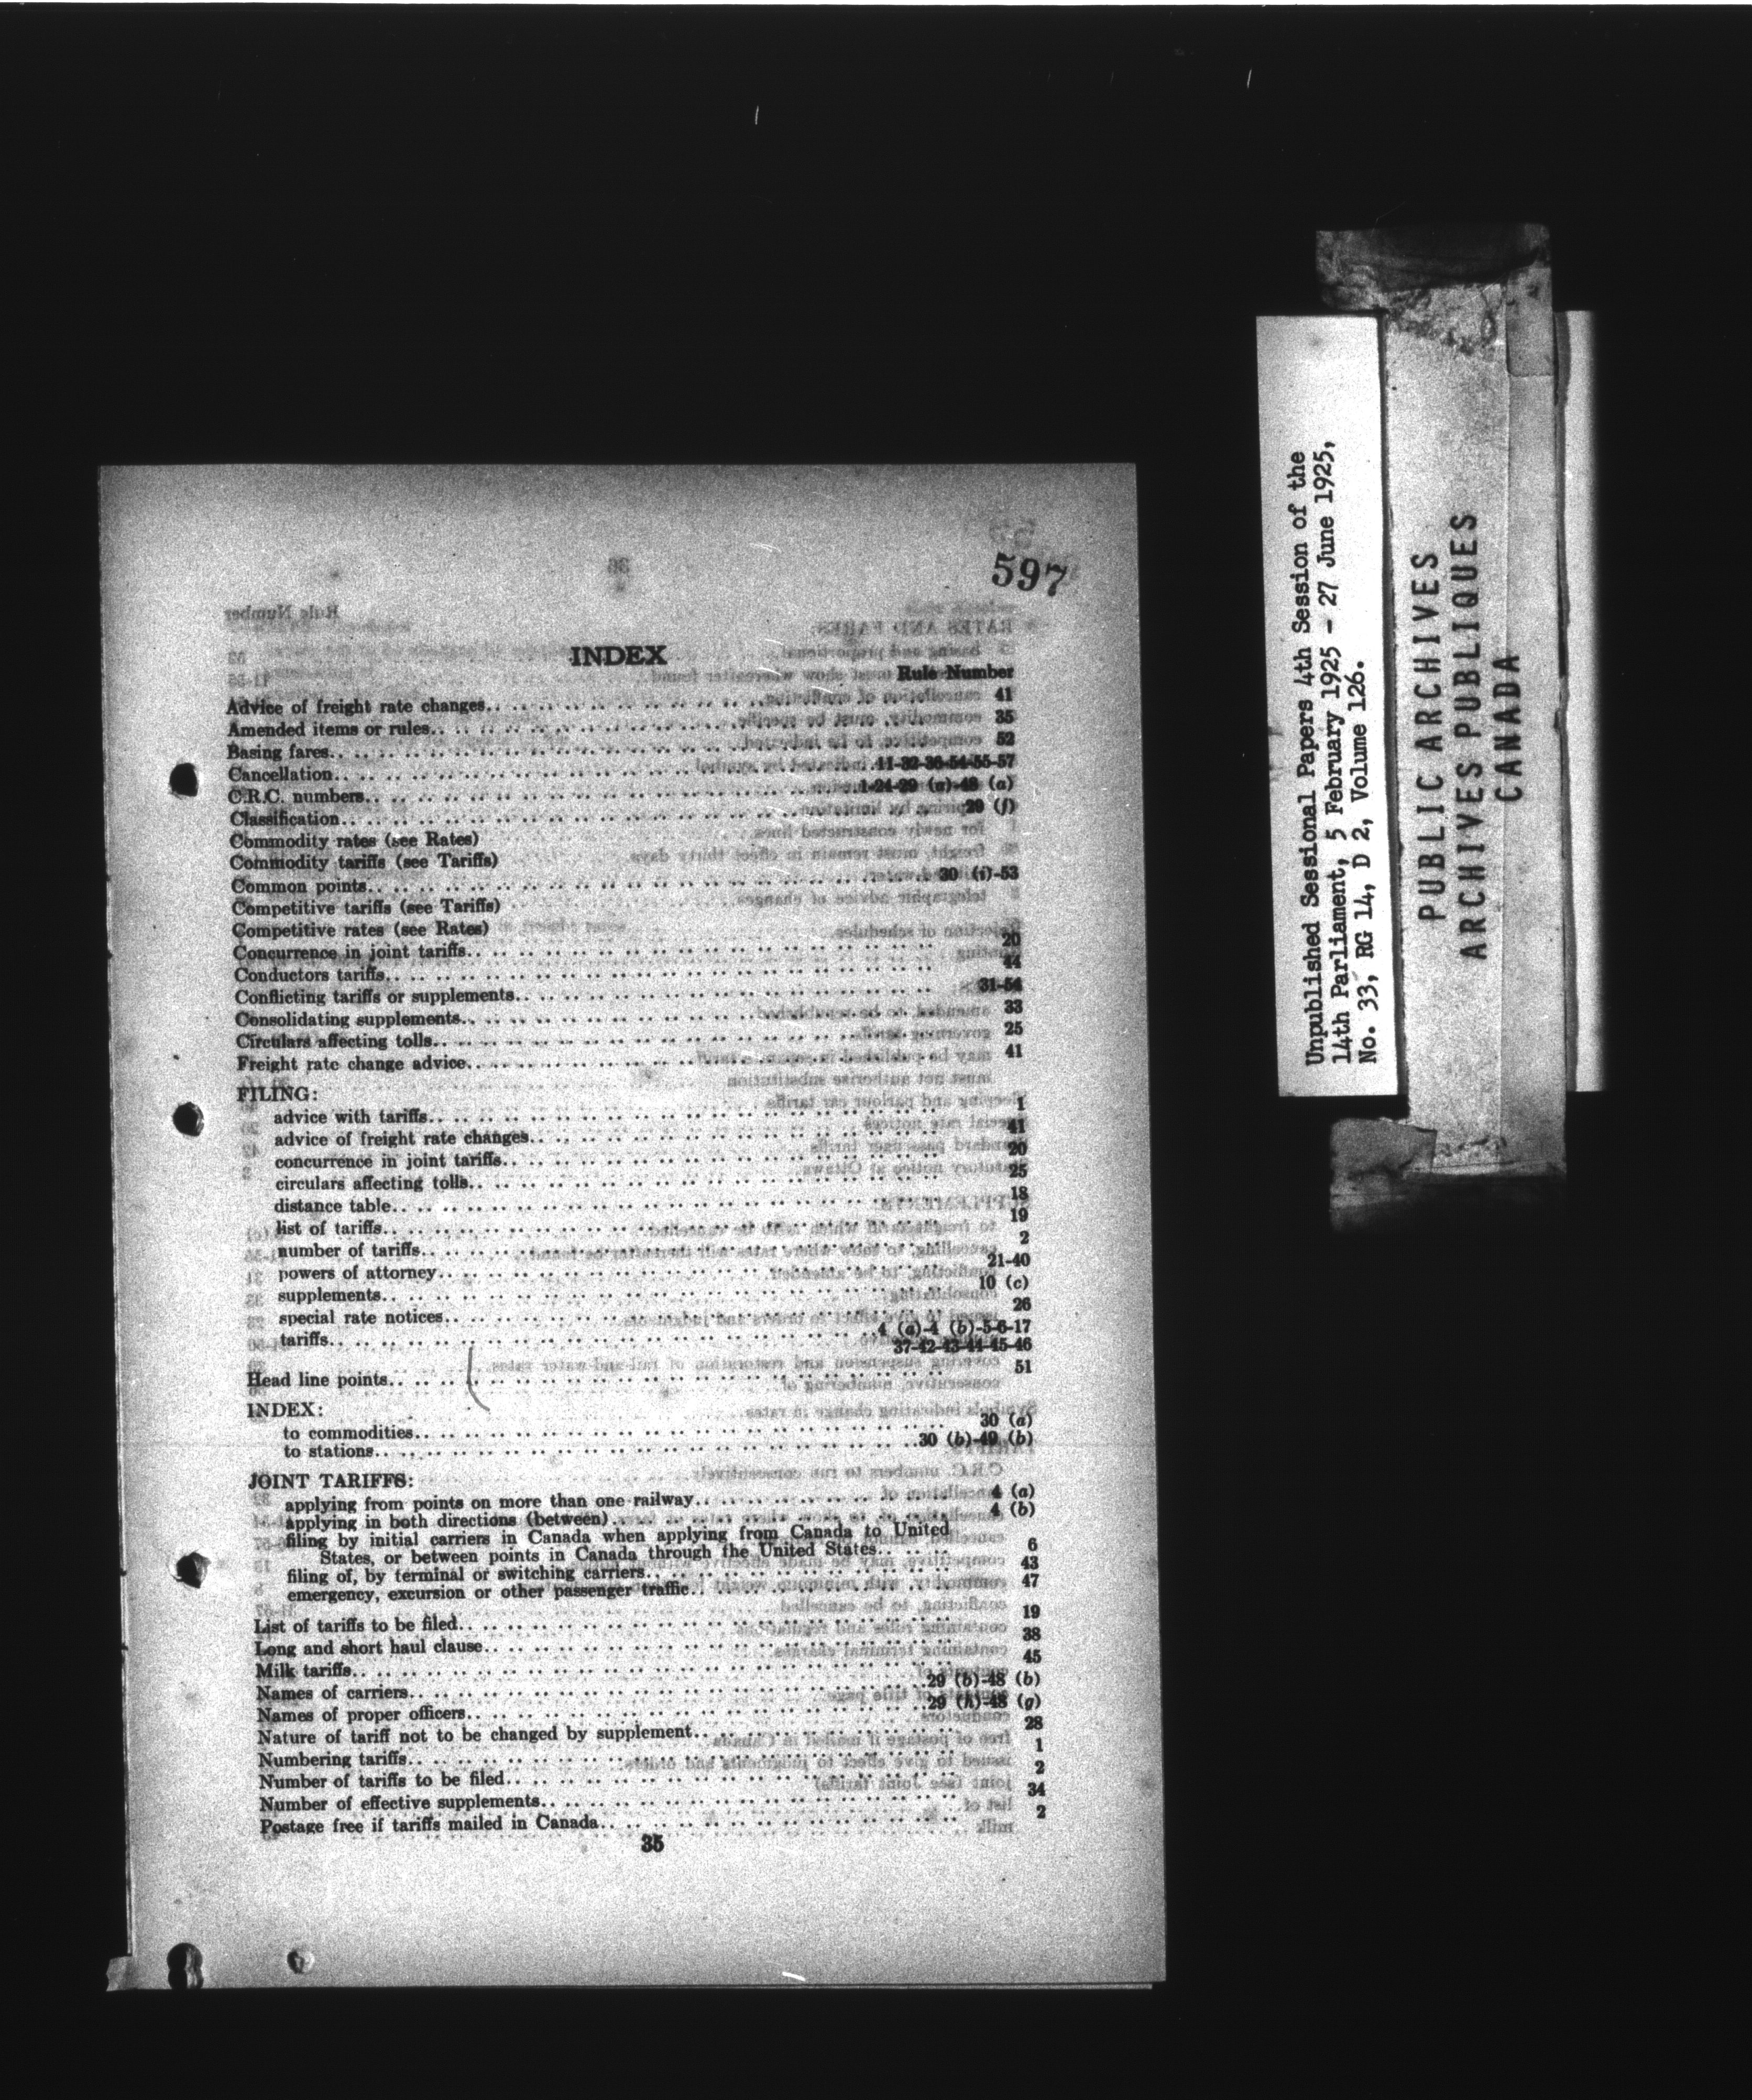 597
INDEX
Rule Number
Advice of freight rate changes.. 41
Amended items or rules.. 35
Basing fares.. 52
Cancellation.. 11-32-36-54-55-57
C.R.C. numbers.. 1-24-29 (a)-48 (a)
Classification.. 29 (f)
Commodity rates (see Rates)
Commodity tariffs (see Tariffs)
Common points.. 30 (i)-53
Competitive tariffs (see Tariffs)
Competitive rates (see Rates)
Concurrence in joint tariffs.. 20
Conductors tariffs.. 44
Conflicting tariffs or supplements.. 31-54
Consolidating supplements.. 33
Circulars affecting tolls.. 25
Freight rate change advice.. 41
FILING:
advice with tariffs.. 1
advice of freight rate changes.. 41
concurrence in joint tariffs.. 20
circulars affecting tolls.. 25
distance table.. 18
list of tariffs.. 19
number of tariffs.. 2
powers of attorney.. 21-40
supplements.. 10 (c)
special rate notices.. 26
tariffs.. 4 (a)-4 (b)-5-6-17
37-42-43-44-45-46
Head line points.. 51
INDEX:
to commodities.. 30 (a)
to stations.. 30 (b)-49 (b)
JOINT TARIFFS:
applying from points on more than one railway.. 4 (a)
applying in both directions (between).. 4 (b)
filing by initial carriers in Canada when applying from Canada to United
States, or between points in Canada through the United States.. 6
filing of, by terminal or switching carriers.. 43
emergency, excursion or other passenger traffic.. 47
List of tariffs to be filed.. 19
Long and short haul clause.. 38
Milk tariffs.. 45
Names of carriers.. 29 (b)-48 (b)
Names of proper officers.. 29 (h)-48 (g)
Nature of tariff not to be changed by supplement.. 28
Numbering tariffs.. 1
Number of tariffs to be filed.. 2
Number of effective supplements.. 34
Postage free if tariffs mailed in Canada.. 2
35
Unpublished Sessional Papers 4th Session of the
14th Parliament, 5 February 1925 - 27 June 1925,
No. 33, RG 14, D 2, Volume 126.
PUBLIC ARCHIVES
ARCHIVES PUBLIQUES
CANADA